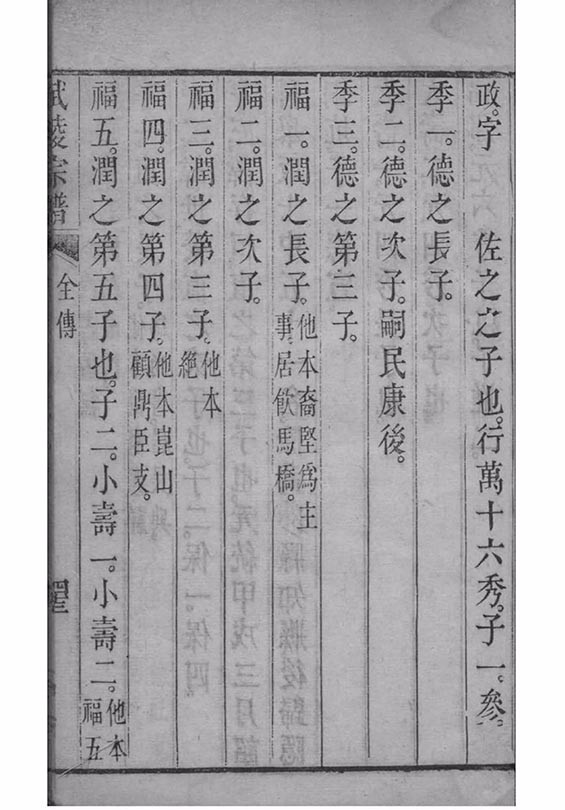 政。字　佐之之子也。行萬十六秀。子一。參
季一。德之長子。
季二。德之次子。嗣民康後。
季三。德之第三子。
福一。潤之長子。他本裔堅為主
事。居飲馬橋。
福二。潤之次子。
福三。潤之第三子。他本
絶
福四。潤之第四子。他本崑山
顧鼎臣支。
福五。潤之第五子也。子二。小壽一。小壽二。他本
福五
武陵宗譜
全傳